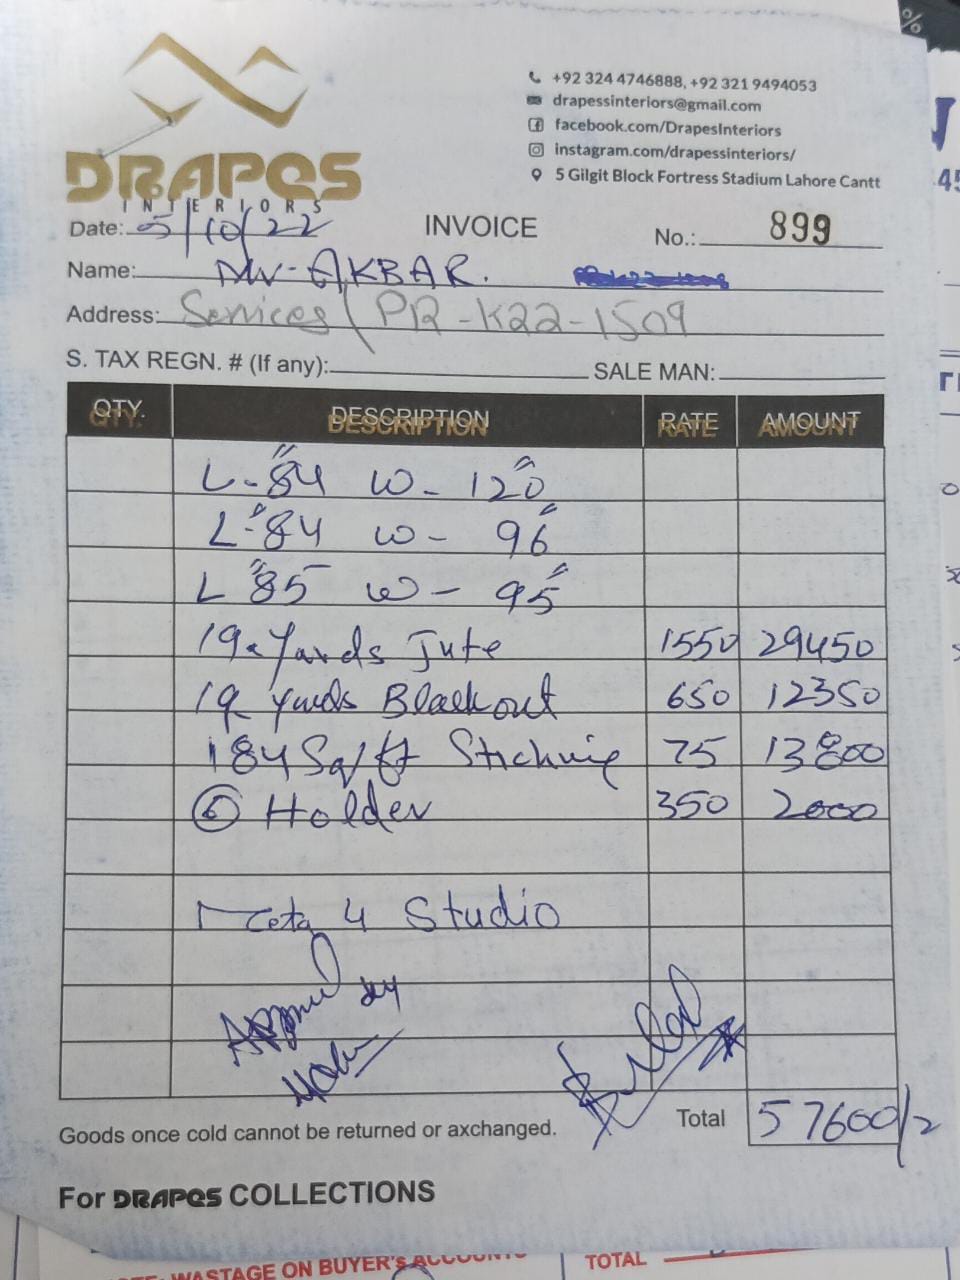 +92 324 4746888, +92 321 9494053
drapessinteriors@gmail.com
facebook.com/DrapesInteriors
instagram.com/drapessinteriors/
5 Gilgit Block Fortress Stadium Lahore Cantt
DRAPES
INTERIORS
Date: 5/10/22
INVOICE
No.: 899
Name: Mr. AKBAR.
Address: Services / PR-K22-1509
S. TAX REGN. # (If any):
SALE MAN:
QTY. DESCRIPTION RATE AMOUNT
L-84" W-120"
L-84" W-96"
L 85" W-95"
19 Yards Jute 1550 29450
19 yards Blackout 650 12350
184 Sq/ft Stiching 75 13800
6 Holder 350 2000
Meta 4 Studio
Approved by
Bilal
Total 57600/2
Goods once cold cannot be returned or axchanged.
For DRAPES COLLECTIONS
WASTAGE ON BUYER's ACCOUNT
TOTAL